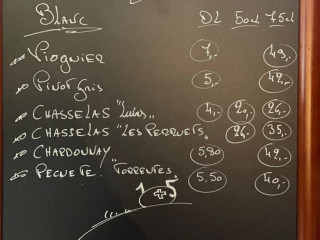 BLANC DL 50cl 75cl
VIOGNIER 7,- 49,-
PINOT GRIS 5,- 42,-
CHASSELAS 4,- 20,- 26,-
CHASSELAS "LES PERRUETS" 26,- 35,-
CHARDONNAY 5,80 42,-
"TORRENTES" 5.50 40,-
1+5